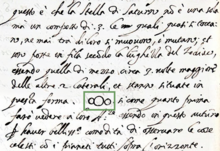 questo è che la stella di Saturno non è una sola,
ma un composto di 3. le quali quasi si tocca-
no, ne mai tra di loro si muovono, o mutano; et
son poste in fila secondo la lunghezza del Zodiaco,
essendo quella di mezzo circa 3 volte maggiore
delle altre 2 laterali, et stanno situate in
questa forma oOo si come quanto prima
farò vedere a loro essendo in questo autunno
per haver comodità di osservare le cose
celesti con i pianeti tutti sopra l'orizonte